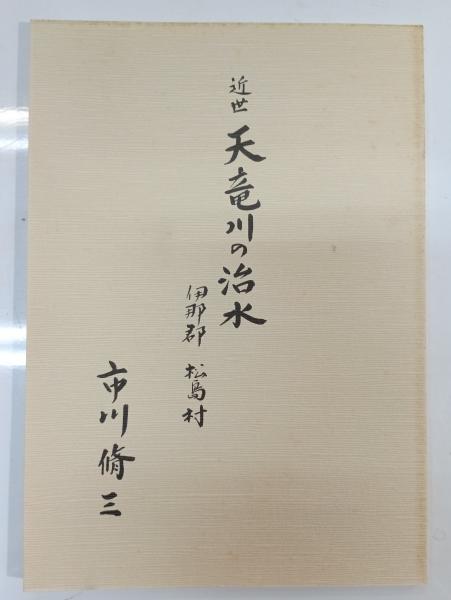 近世 天竜川の治水
伊那郡 松島村
市川脩三